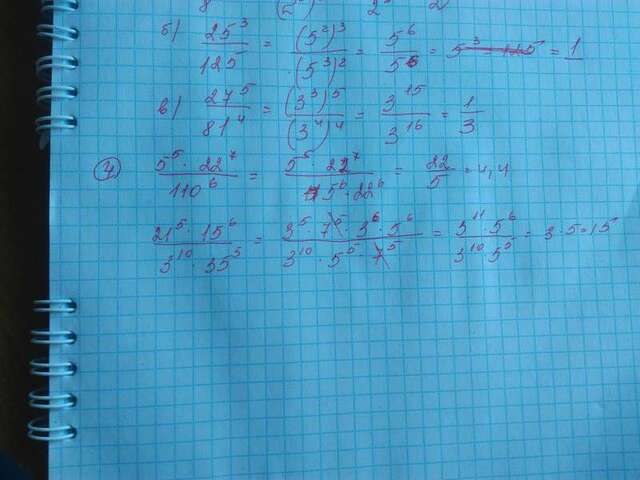 б) 25³ / 125 = (5²)³ / (5³)² = 5⁶ / 5⁶ = = 1
в) 27⁵ / 81⁴ = (3³)⁵ / (3⁴)⁴ = 3¹⁵ / 3¹⁶ = 1 / 3
④ 5⁵ · 22⁷ / 110⁶ = 5⁵ · 22⁷ / 5⁶ · 22⁶ = 22 / 5 = 4,4
21⁵ · 15⁶ / 3¹⁰ · 35⁵ = 3⁵ · 7⁵ · 3⁶ · 5⁶ / 3¹⁰ · 5⁵ · 7⁵ = 3¹¹ · 5⁶ / 3¹⁰ 5⁵ = 3 · 5 = 15